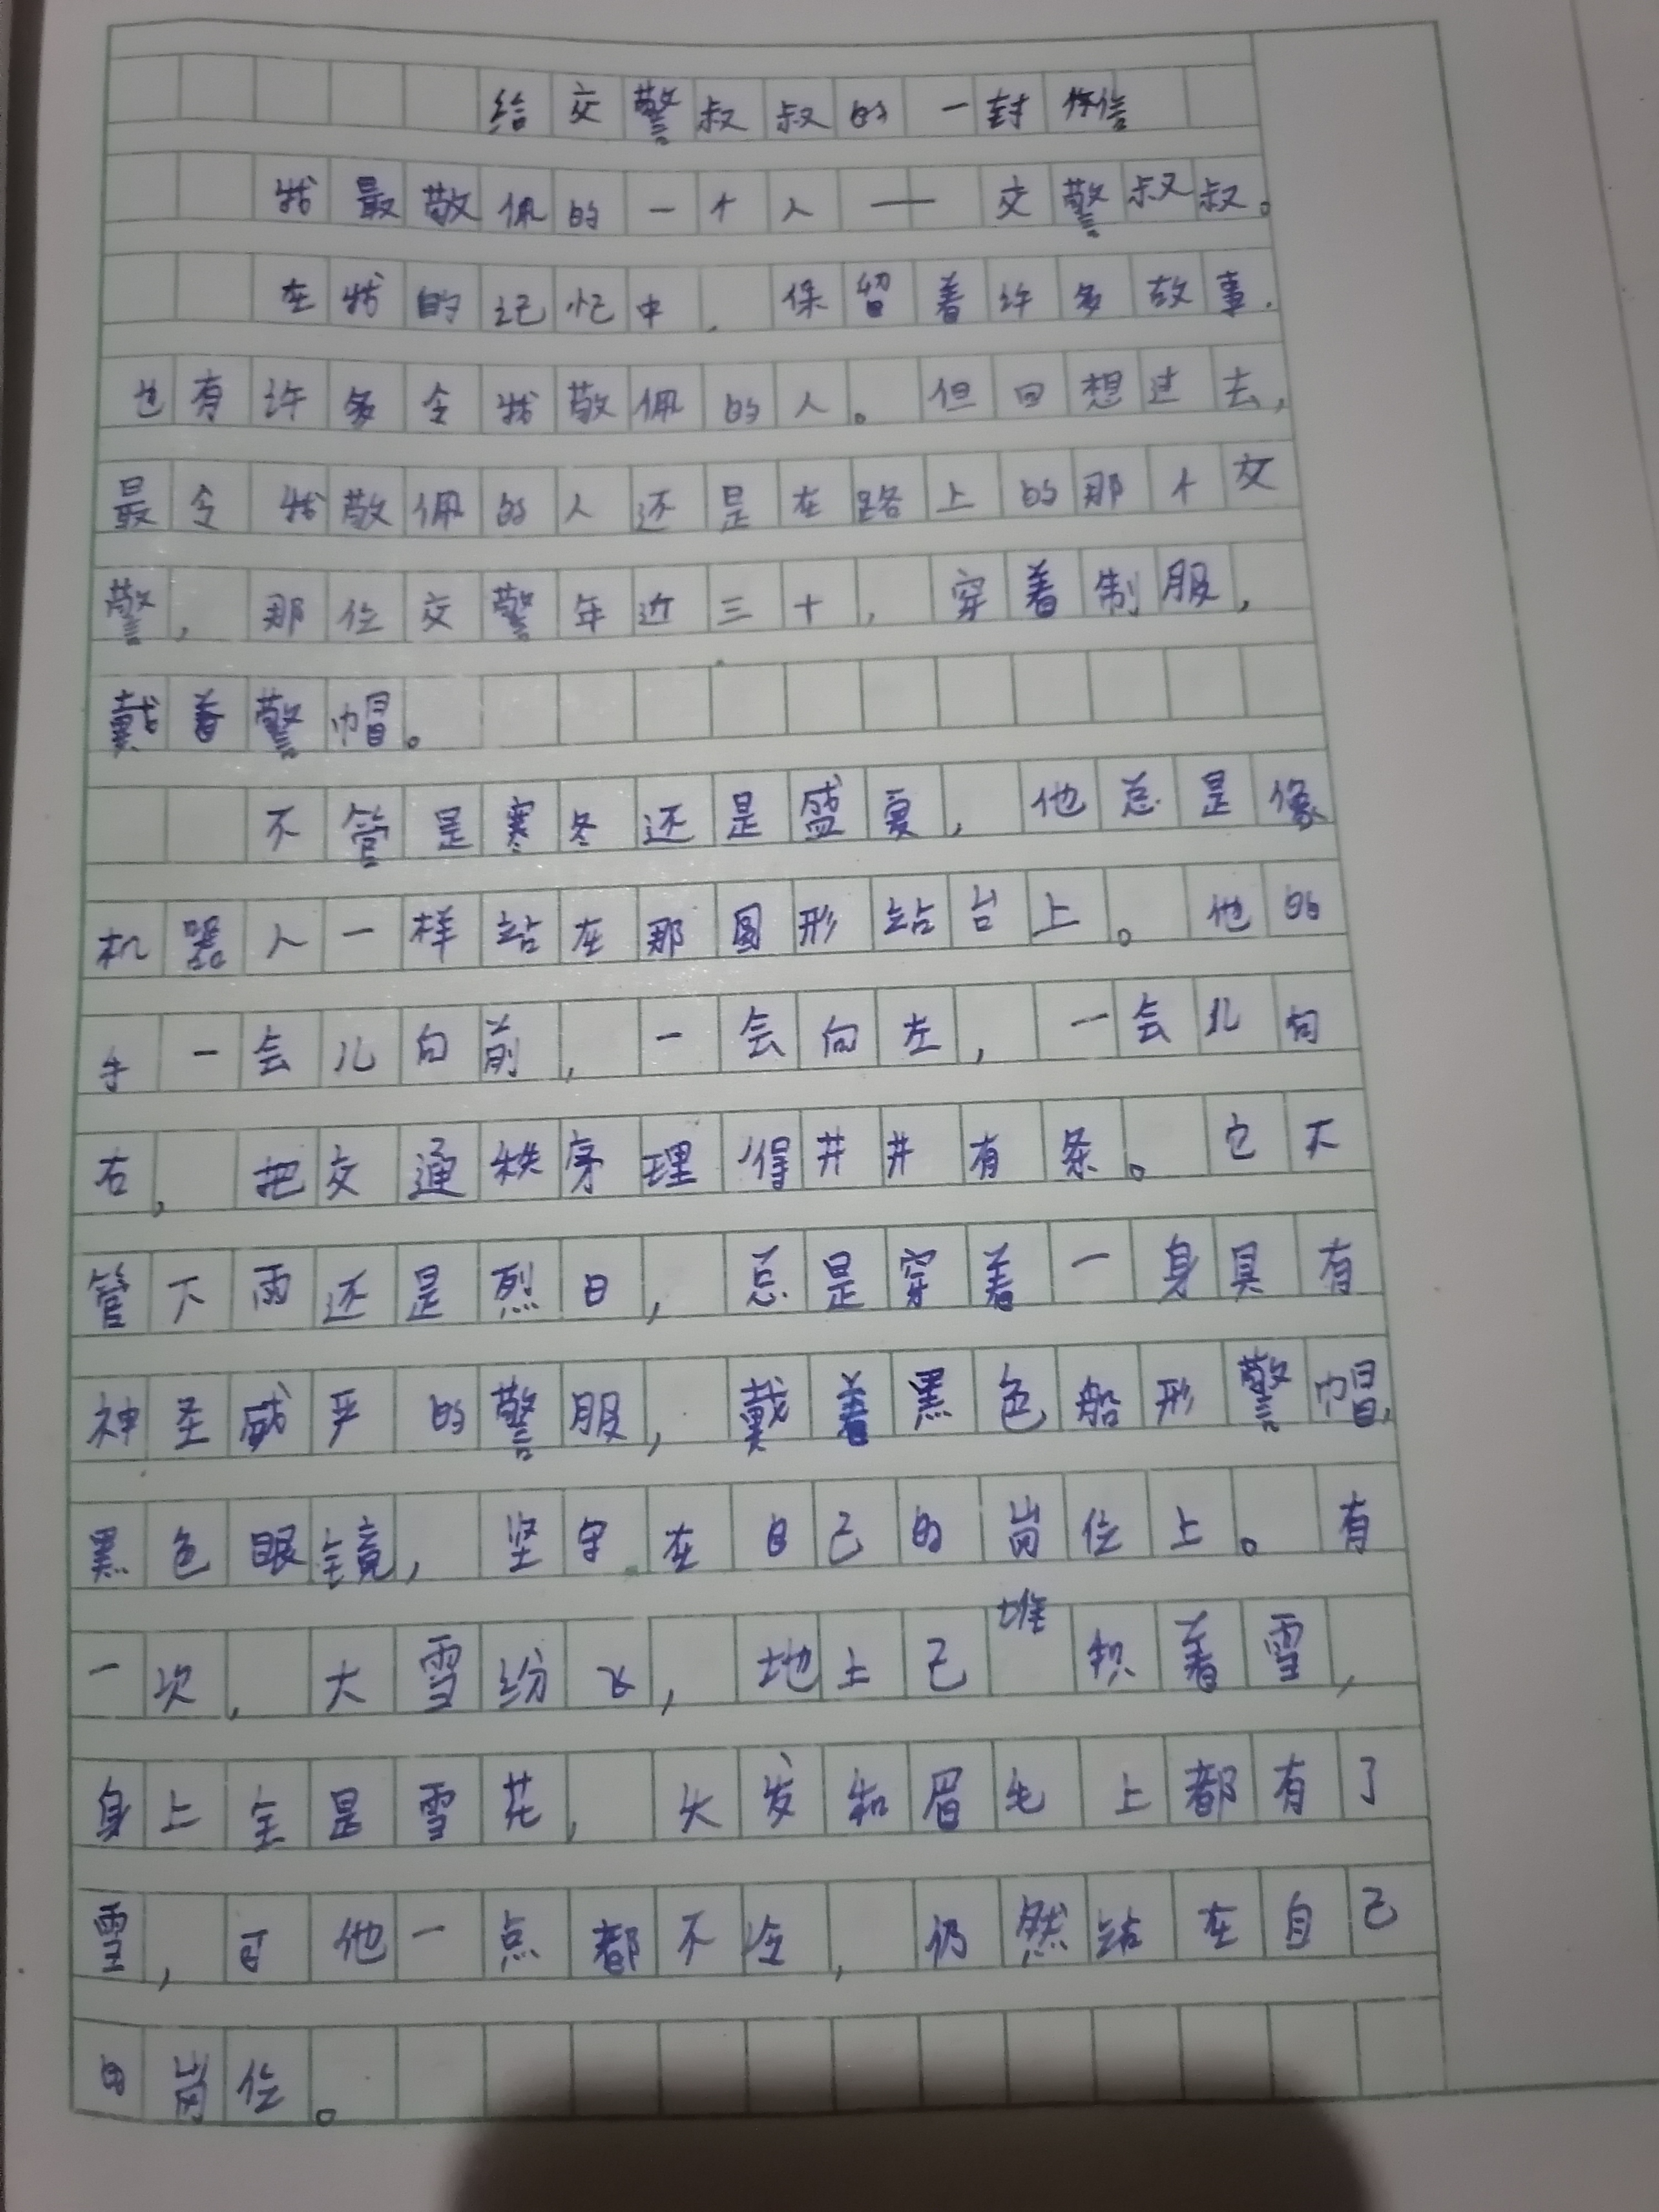 给交警叔叔的一封信
我最敬佩的一个人——交警叔叔。
在我的记忆中，保留着许多故事，
也有许多令我敬佩的人。但回想过去，
最令我敬佩的人还是在路上的那个交
警，那位交警年近三十，穿着制服，
戴着警帽。
不管是寒冬还是盛夏，他总是像
机器人一样站在那圆形站台上。他的
手一会儿向前，一会向左，一会儿向
右，把交通秩序理得井井有条。它不
管下雨还是烈日，总是穿着一身具有
神圣威严的警服，戴着黑色船形警帽，
黑色眼镜，坚守在自己的岗位上。有
一次，大雪纷飞，地上已堆积着雪，
身上全是雪花，头发和眉毛上都有了
雪，可他一点都不冷，仍然站在自己
的岗位。